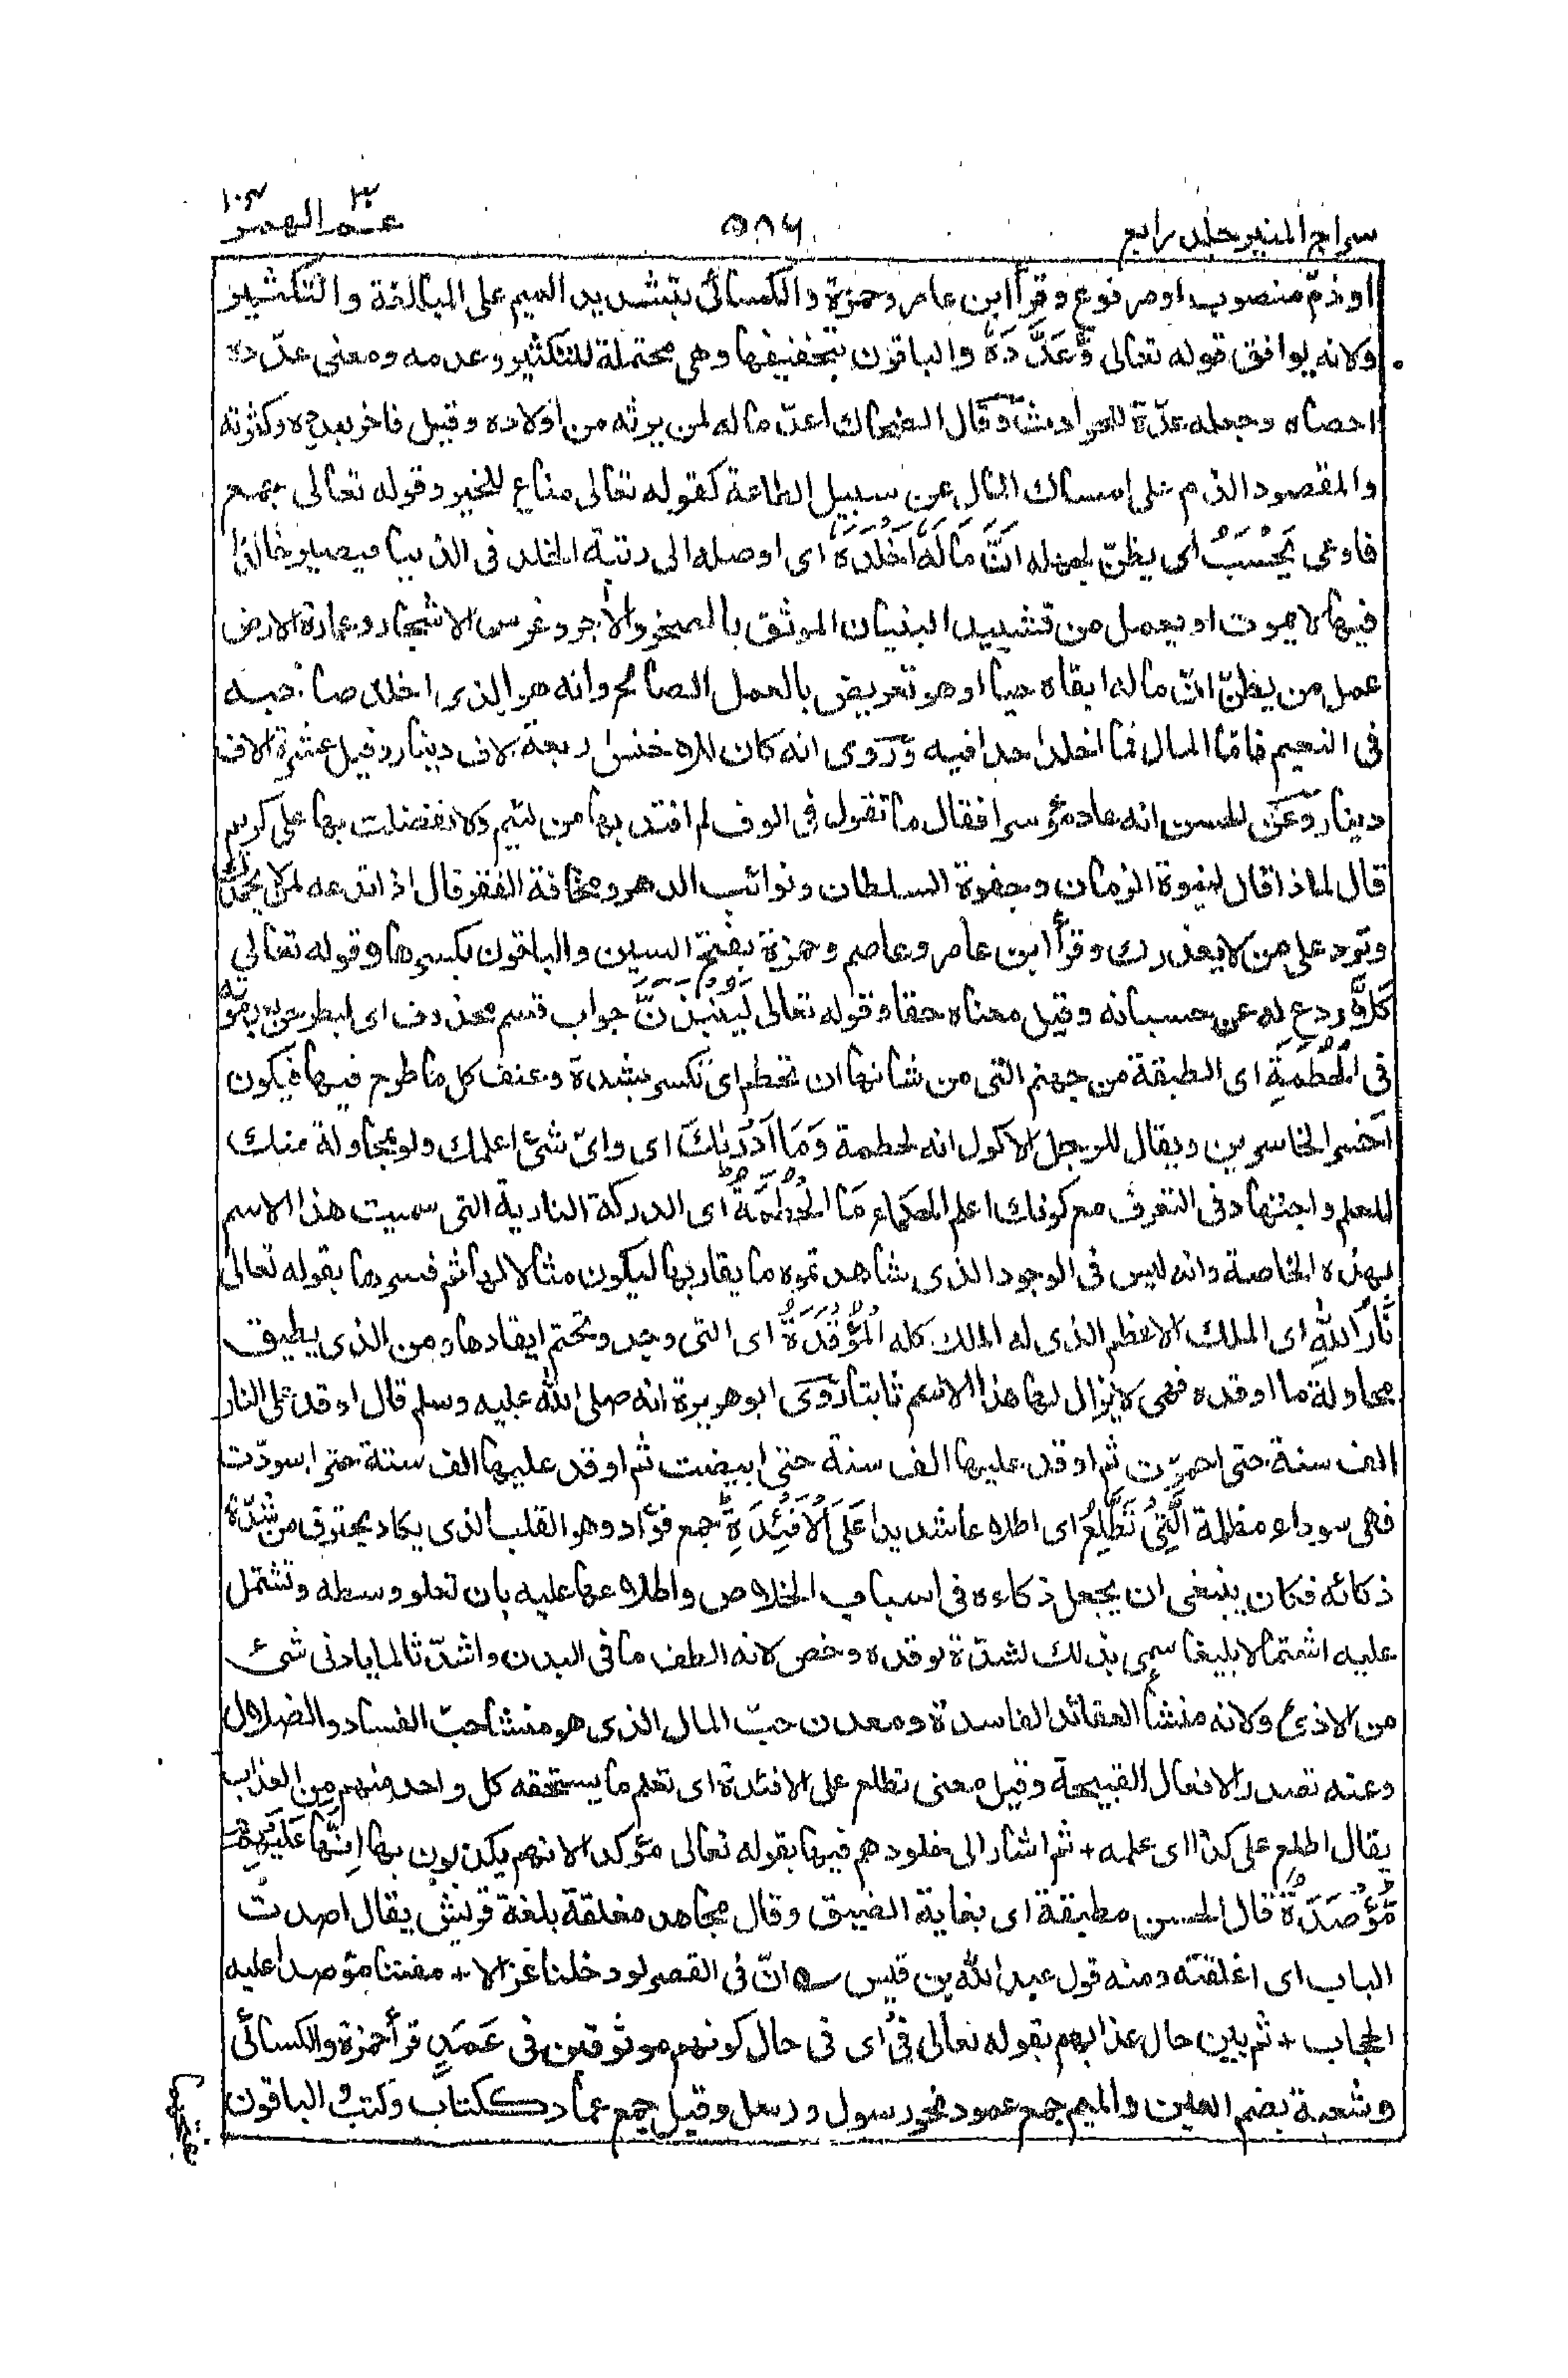 سراج المنير جلد رابع
٥٨٦
عم الهمزة ١٠٤ ٣٠
او ذمّ منصوب او مرفوع وقرأ ابن عامر وحمزة والكسائى بتشديد الميم على المبالغة والتكثير
ولانه يوافق قوله تعالى وَّعَدَّدَهٗ والباقون بتخفيفها وهى محتملة للتكثير وعدمه ومعنى عدّده
احصاه وجعله عدّة للحوادث وقال الضحاك اعدّ ماله لمن يرثه من اولاده وقيل فاخر بعدده وكثرته
والمقصود الذم على امساك المال عن سبيل الطاعة كقوله تعالى مناع للخير وقوله تعالى جمع
فاوعى يَحْسَبُ اى يظنّ لجهله اَنَّ مَالَهٗٓ اَخْلَدَهٗ اى اوصله الى رتبة الخلد فى الدنيا فيصير خالدا
فيها لا يموت او يعمل من تشييد البنيان الموثق بالصخر والآجر وغرس الاشجار وعمارة الارض
عمل من يظنّ انّ ماله ابقاه حيا او هو تعريض بالعمل الصالح وانه هو الذى اخلد صاحبه
فى النعيم فامّا المال فما اخلد احدا فيه وروى انه كان للاخنس اربعة الاف دينار وقيل عشرة الاف
دينار وعن الحسن انه عاد موسرا فقال ما تقول فى الوف لم افتد بها من لئيم ولا تفضلت بها على كريم
قال لماذا قال لنبوة الزمان وجفوة السلطان ونوائب الدهر ومخافة الفقر قال اذا تدعه لمن لا يحمدك
وترد على من لا يعذرك وقرأ ابن عامر وعاصم وحمزة بفتح السين والباقون بكسرها وقوله تعالى
كَلَّا ردع له عن حسبانه وقيل معناه حقا وقوله تعالى لَيُنْۢبَذَنَّ جواب قسم محذوف اى ليطرحن بعد موته
فى الْحُطَمَةِ اى الطبقة من جهنم التى من شانها ان تحطم اى تكسر بشدة وعنف كل ما طرح فيها فيكون
اخسر الخاسرين ويقال للرجل الاكول انه لحطمة وَمَآ اَدْرٰىكَ اى واىّ شئ اعلمك ولو بمحاولة منك
للعلم واجتهاد فى التعرف مع كونك اعلم الحكماء مَا الْحُطَمَةُ اى الدركة النارية التى سميت هذا الاسم
بهذه الخاصة وانه ليس فى الوجود الذى شاهدتموه ما يقاربها ليكون مثالا لها ثم فسرها بقوله تعالى
نَارُ اللّٰهِ اى الملك الاعظم الذى له الملك كله الْمُوْقَدَةُ اى التى وجد وتحتم ايقادها ومن الذى يطيق
محاولة ما اوقده فهى لا يزال لها هذا الاسم ثابتا روى ابو هريرة انه صلى الله عليه وسلم قال اوقد على النار
الف سنة حتى احمرّت ثم اوقد عليها الف سنة حتى ابيضت ثم اوقد عليها الف سنة حتى اسودّت
فهى سوداء مظلمة الَّتِىْ تَطَّلِعُ اى اطلاعا شديدا عَلَى الْاَفْـِٕدَةِ جمع فؤاد وهو القلب الذى يكاد يحترق من شدّة
ذكائه فكان ينبغى ان يجعل ذكاءه فى اسباب الخلاص واطلاعها عليه بان تعلو وسطه وتشتمل
عليه اشتمالا بليغا سمى بذلك لشدّة توقده وخص لانه الطف ما فى البدن واشدّ تالما بادنى شئ
من الاذى ولانه منشأ العقائد الفاسدة ومعدن حبّ المال الذى هو منشأ حبّ الفساد والضلال
وعنه تصدر الافعال القبيحة وقيل معنى تطلع على الافئدة اى تعلم ما يستحقه كل واحد منهم من العذاب
يقال اطلع على كذا اى علمه + ثم اشار الى خلودهم فيها بقوله تعالى مؤكدا لانهم يكذبون بها اِنَّهَا عَلَيْهِمْ
مُّؤْصَدَةٌ قال الحسن مطبقة اى بغاية الضيق وقال مجاهد مغلقة بلغة قريش يقال اصدت
الباب اى اغلقته ومنه قول عبد الله بن قيس انّ فى القصر لو دخلنا غزالا + مفتنا مؤصدا عليه
الحجاب + ثم بين حال عذابهم بقوله تعالى فِىْ اى فى حال كونهم موثوقين فى عَمَدٍ قرأ حمزة والكسائى
وشعبة بضم العين والميم جمع عمود نحو رسول ورسل وقيل جمع عماد ككتاب وكتب والباقون